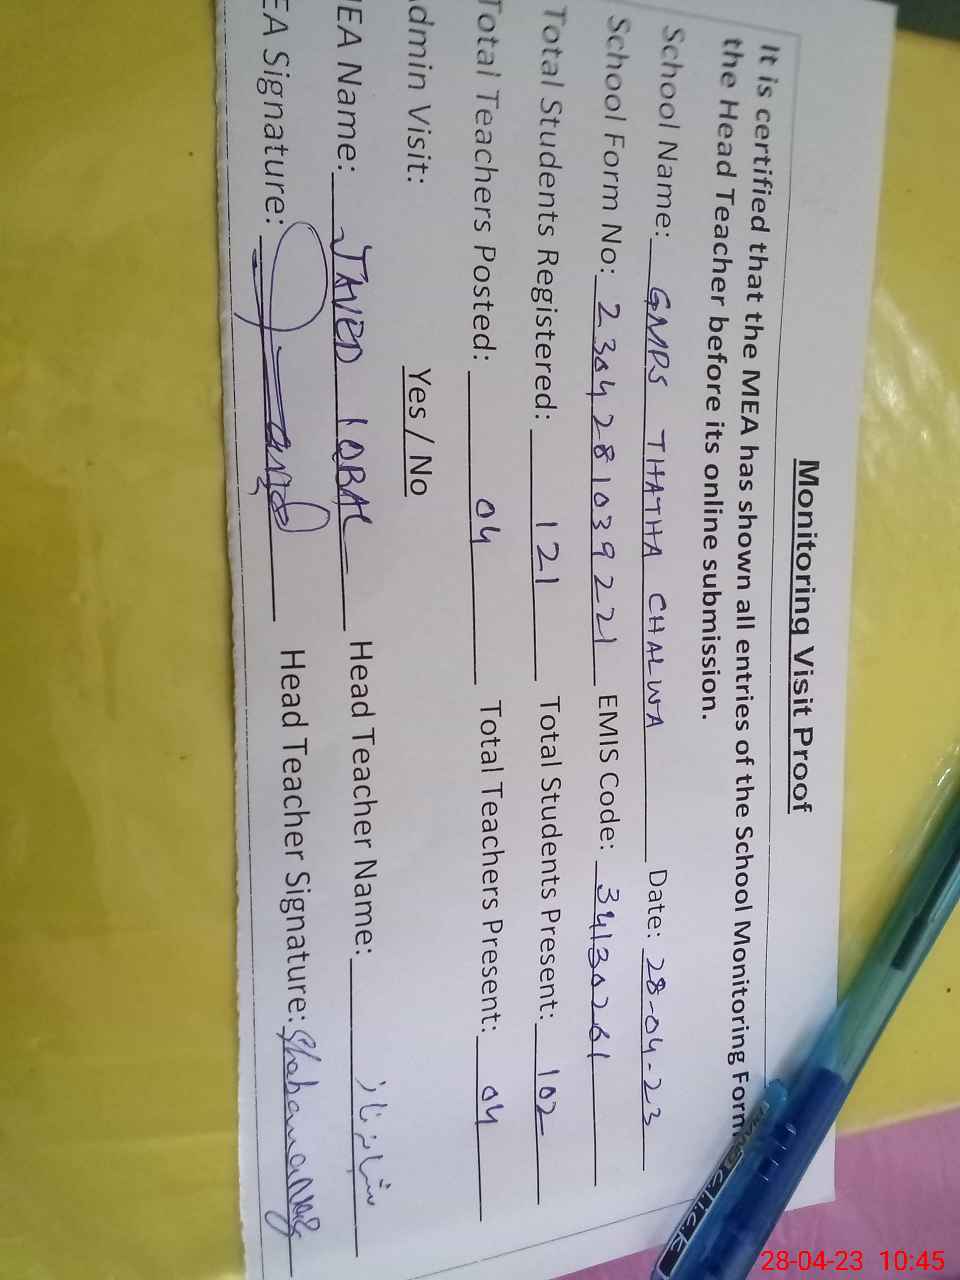 Monitoring Visit Proof
It is certified that the MEA has shown all entries of the School Monitoring Form
the Head Teacher before its online submission.
School Name: GMPS THATHA CHALWA Date: 28-04-23
School Form No: 2304281039221 EMIS Code: 34130261
Total Students Registered: 121 Total Students Present: 102
Total Teachers Posted: 04 Total Teachers Present: 04
Admin Visit: Yes / No
MEA Name: JAVED IQBAL Head Teacher Name:
EA Signature: Head Teacher Signature:
click
28-04-23 10:45